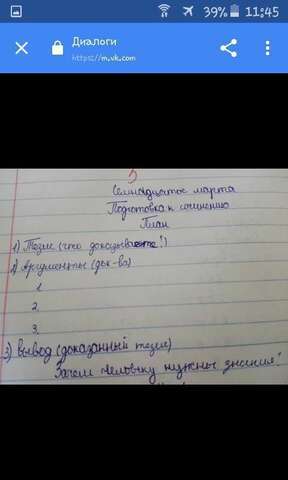 39% 11:45
Диалоги
https://m.vk.com
5
Семнадцатое марта
Подготовка к сочинению
План
1) Тезис (что доказываете!)
2) Аргументы (док-ва)
1.
2.
3.
3) вывод (доказанный тезис)
Зачем человеку нужны знания?